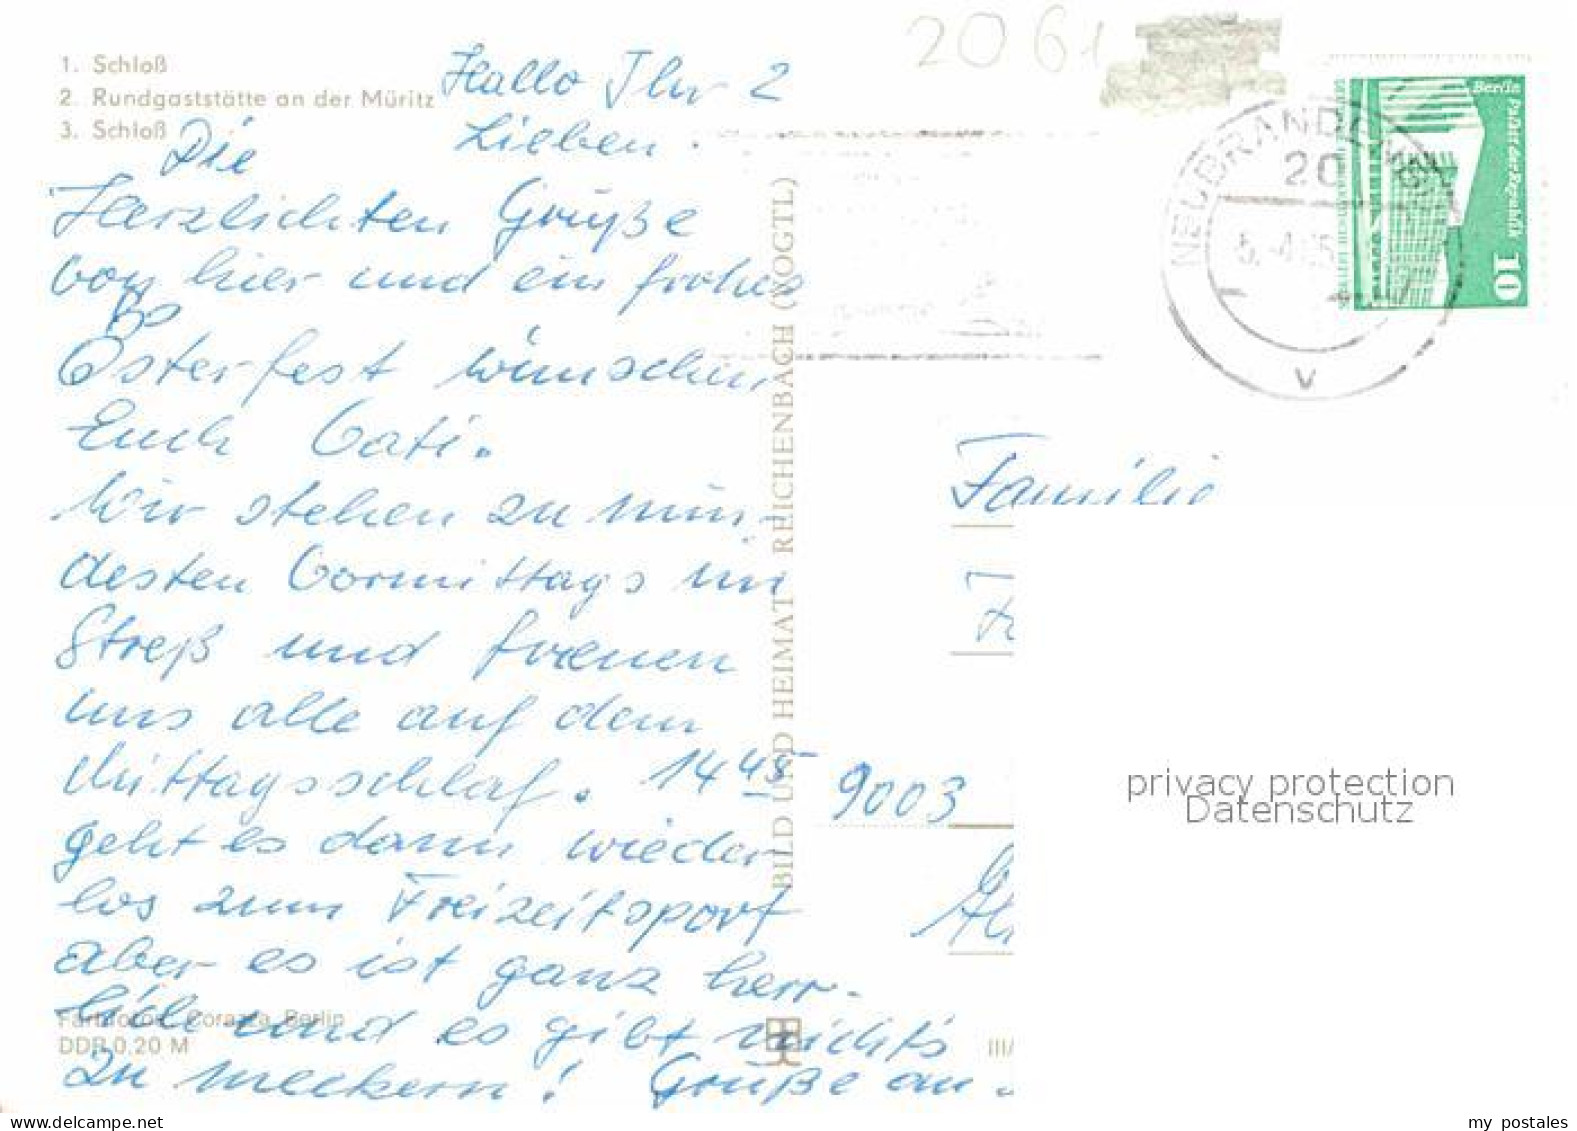 1. Schloß
2. Rundgaststätte an der Müritz
3. Schloß
2061
Hallo Ihr 2
Lieben.
Die
Herzlichsten Grüße
von hier und ein frohes
Osterfest wünschen
Euch
Wir stehen zu min-
desten Vormittags im
Streß und freuen
uns alle auf dem
Mittagsschlaf. 14 45
geht es dann wieder
los zum Freizeitsport
aber es ist ganz herr-
lich und es gibt nichts
zu meckern! Grüße an
Farbfotos: Corazza, Berlin
DDR 0,20 M
BILD UND HEIMAT REICHENBACH (VOGTL)
III/
NEUBRANDENBURG
20
V
Berlin Palast der Republik
10
Familie
9003
privacy protection
Datenschutz
my postales